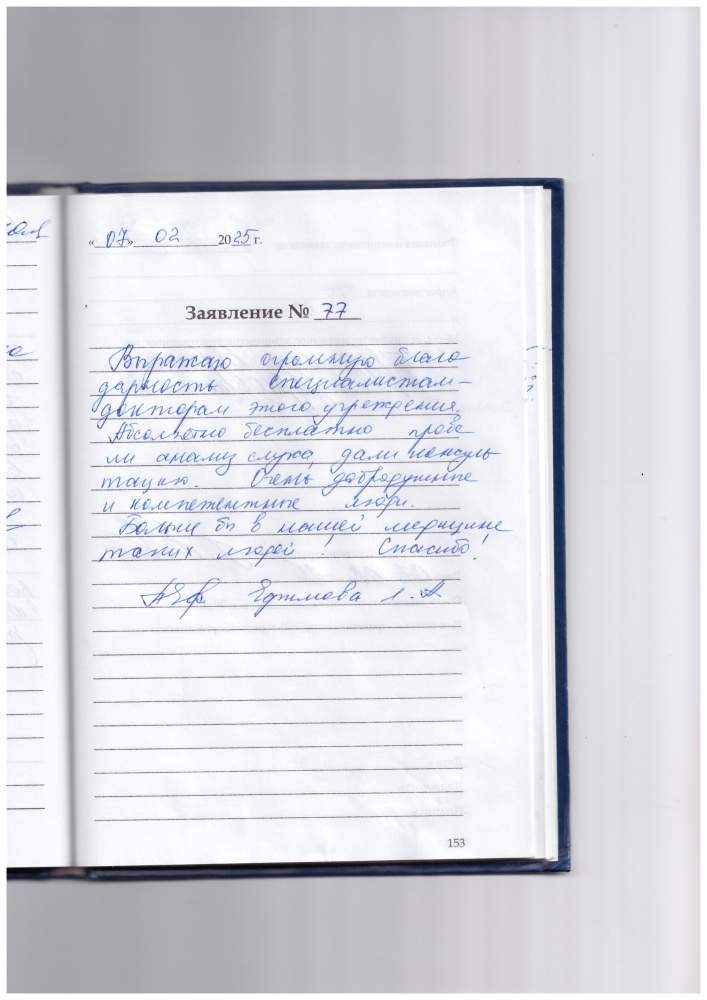 «07» 02 2025 г.
Заявление № 77
Выражаю огромную благо
дарность специалистам–
докторам этого учреждения.
Абсолютно бесплатно прове
ли анализ слуха, дали консуль
тацию. Очень добродушные
и компетентные люди.
Больше бы в нашей медицине
таких людей! Спасибо!
Ефимова Л. А
153